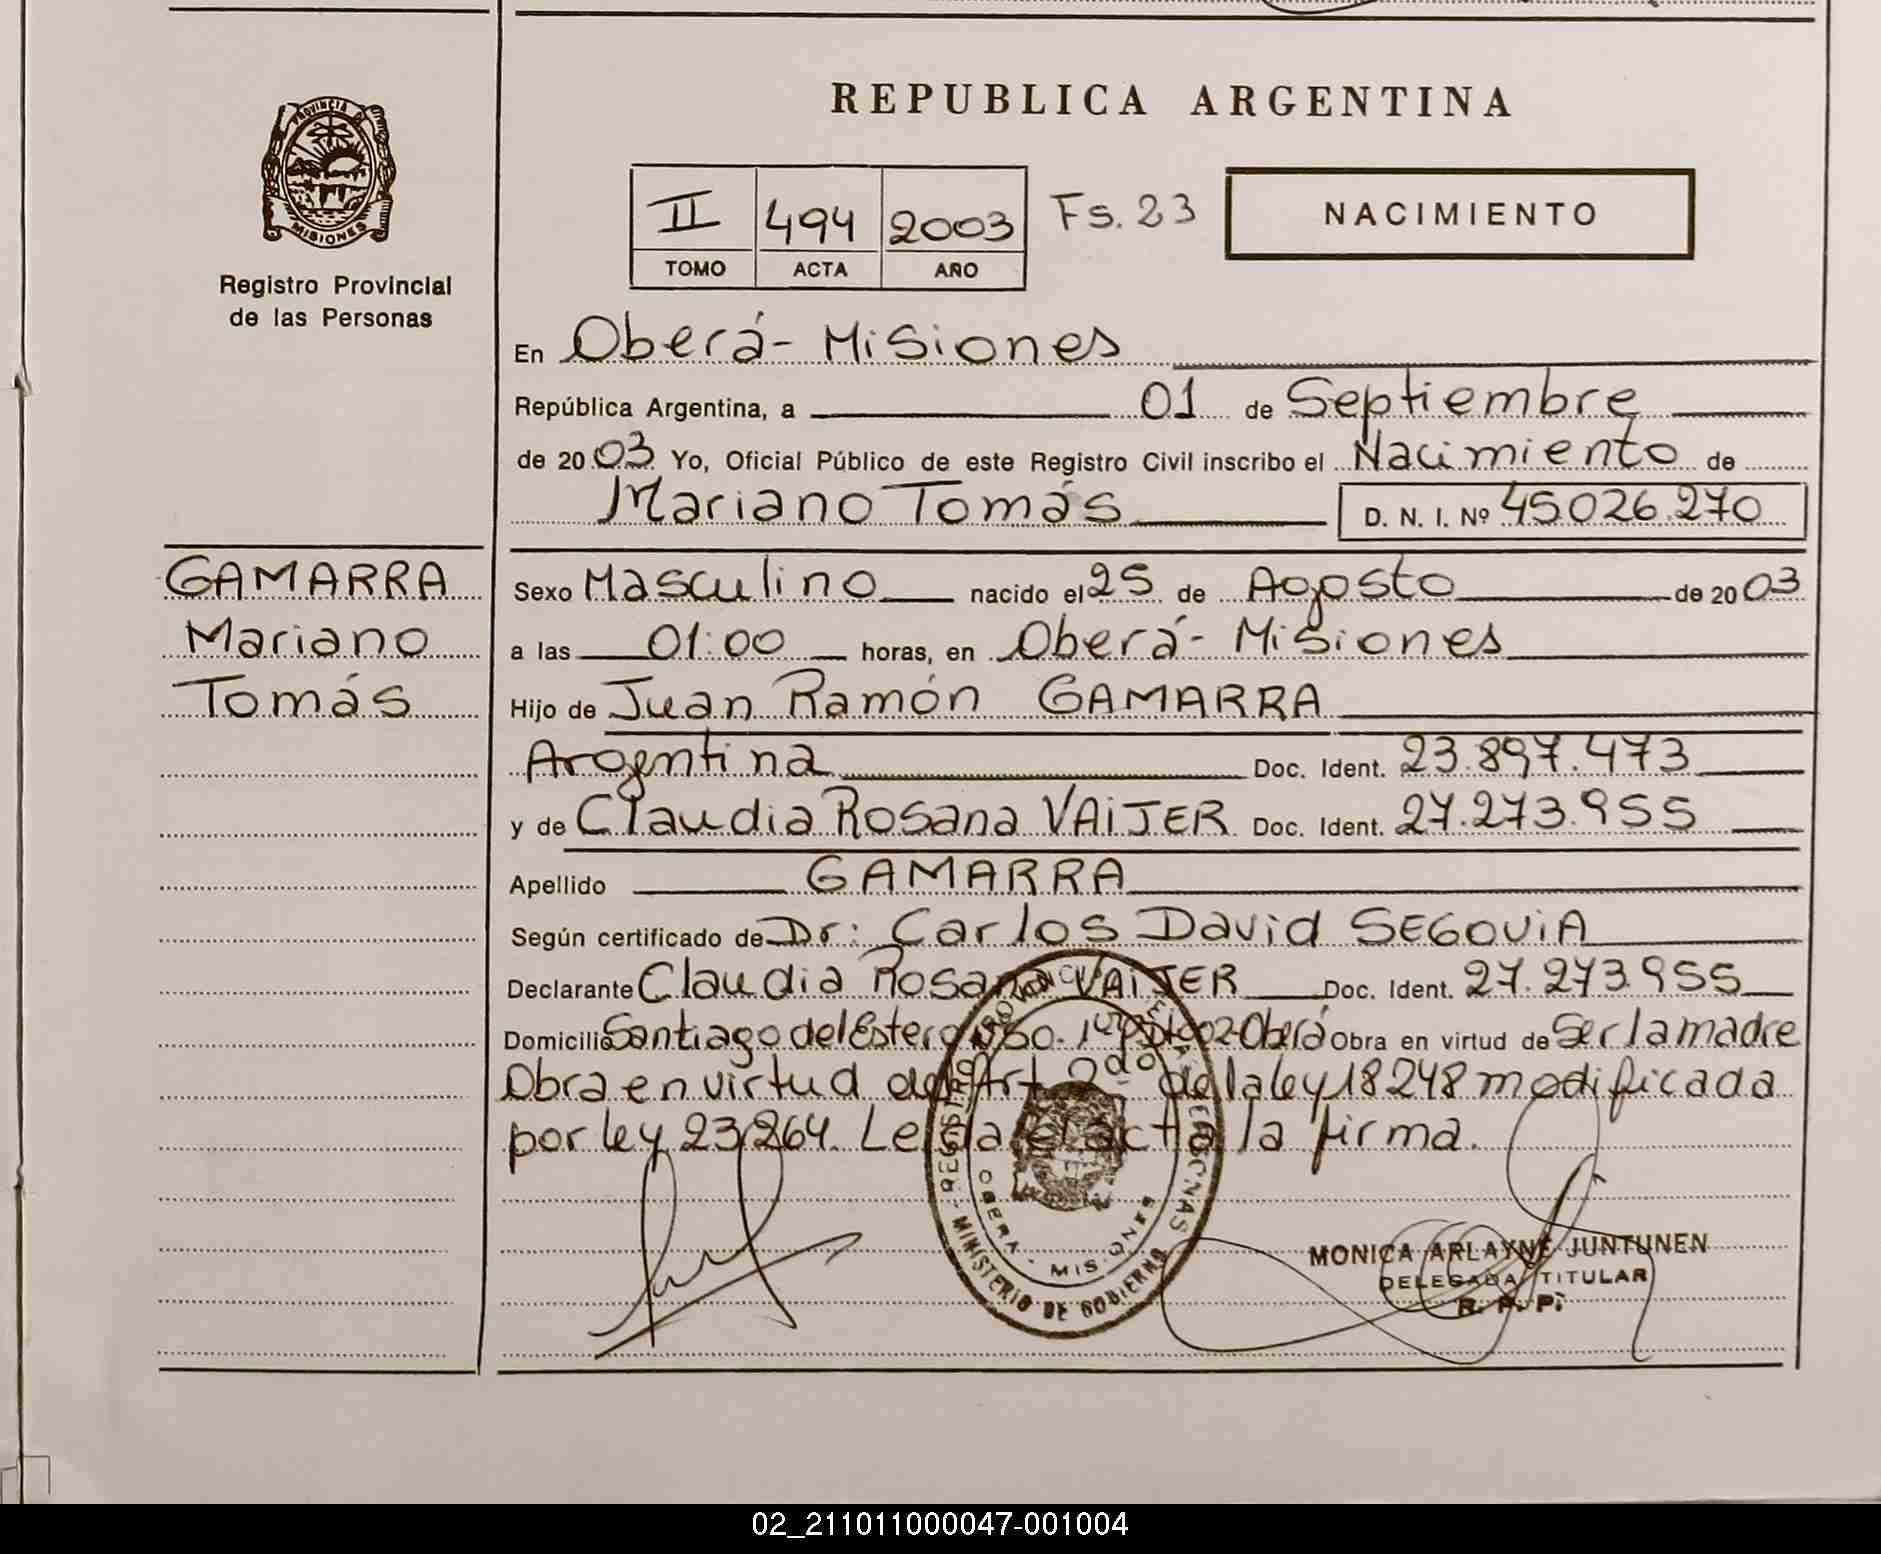 REPUBLICA ARGENTINA
PROVINCIA DE MISIONES
Registro Provincial
de las Personas
II 494 2003 Fs. 23
TOMO ACTA AÑO
NACIMIENTO
En Oberá - Misiones
República Argentina, a 01 de Septiembre
de 2003 Yo, Oficial Público de este Registro Civil inscribo el Nacimiento de
Mariano Tomás D. N. I. Nº 45.026.270
GAMARRA
Mariano
Tomás
Sexo Masculino nacido el 25 de Agosto de 2003
a las 01:00 horas, en Oberá - Misiones
Hijo de Juan Ramón GAMARRA
Argentina Doc. Ident. 23.897.473
y de Claudia Rosana VAiJER Doc. Ident. 27.273.955
Apellido GAMARRA
Según certificado de Dr: Carlos David SEGOViA
Declarante Claudia Rosana VAiJER Doc. Ident. 27.273.955
Domicilio Santiago del Estero Oberá Obra en virtud de Ser la madre
Obra en virtud del Art. 2do de la ley 18248 modificada
por ley 23.264. Leída el acta la firma.
REGISTRO PROVINCIAL DE LAS PERSONAS
MINISTERIO DE GOBIERNO
OBERA - MISIONES
MONICA ARLAYNE JUNTUNEN
DELEGADA TITULAR
R. P. P.
02_211011000047-001004